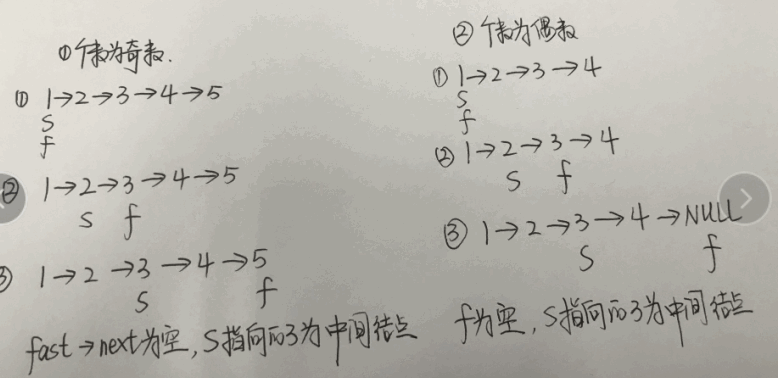 ① 个数为奇数.
① 1→2→3→4→5
S
f
② 1→2→3→4→5
S f
③ 1→2→3→4→5
S f
fast→next为空,S指向的3为中间结点
② 个数为偶数
① 1→2→3→4
S
f
② 1→2→3→4
S f
③ 1→2→3→4→NULL
S f
f为空,S指向的3为中间结点